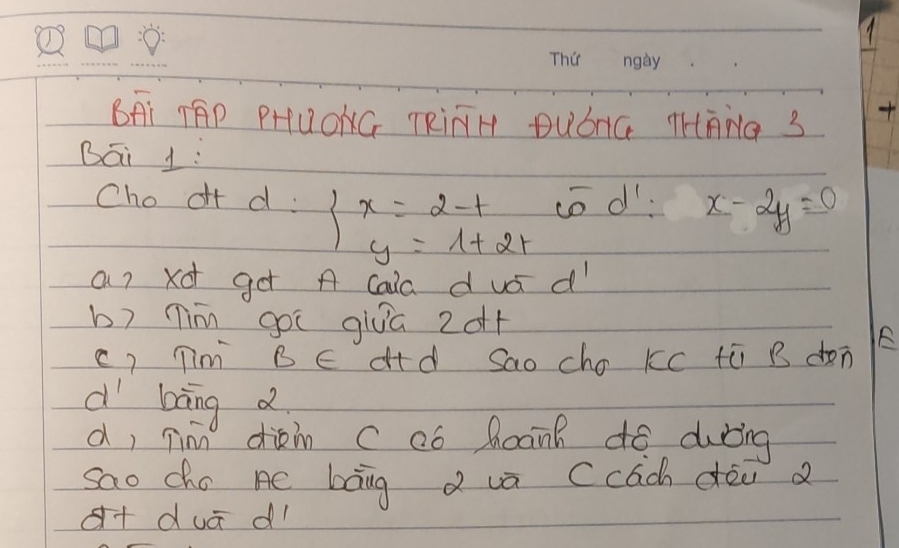 Thứ ngày
BÀI TẬP PHƯƠNG TRÌNH ĐƯỜNG THẲNG 3
Bài 1:
Cho đt d: { x = 2-t có d': x - 2y = 0
y = 1+2t
a, xđ gđ A của d và d'
b, Tìm góc giữa 2đt
c, Tìm B ∈ đt d sao cho KC từ B đến
d' bằng 2.
d, Tìm điểm C có hoành độ dương
sao cho AC bằng 2 và C cách đều 2
đt d và d'